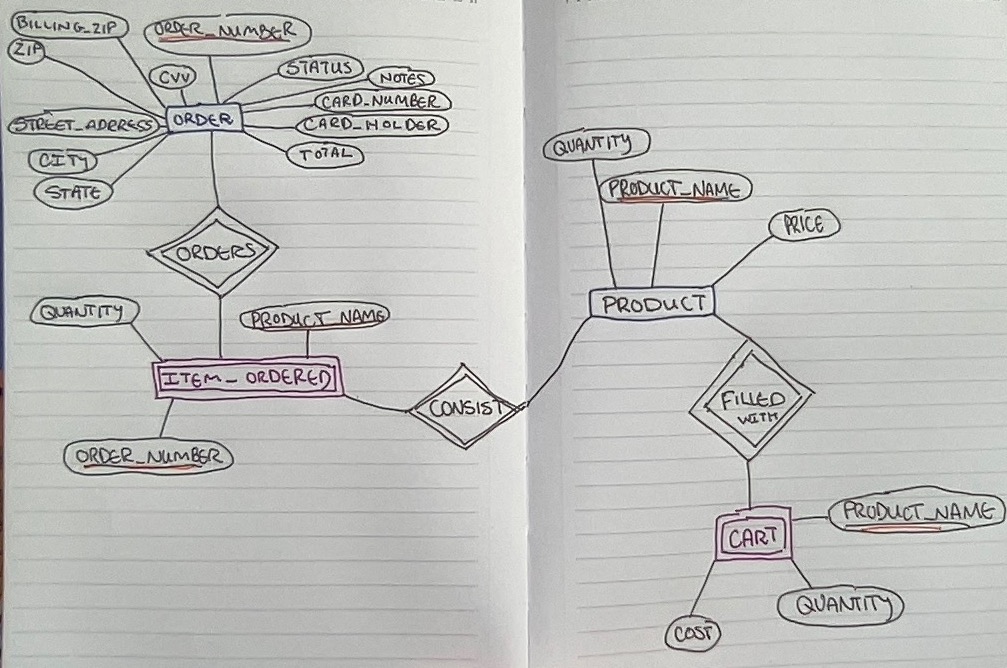 BILLING_ZIP
ORDER_NUMBER
ZIP
CVV
STATUS
NOTES
CARD_NUMBER
STREET_ADDRESS
ORDER
CARD_HOLDER
CITY
TOTAL
STATE
ORDERS
QUANTITY
PRODUCT_NAME
ITEM_ORDERED
ORDER_NUMBER
CONSIST
QUANTITY
PRODUCT_NAME
PRICE
PRODUCT
FILLED
WITH
CART
PRODUCT_NAME
QUANTITY
COST